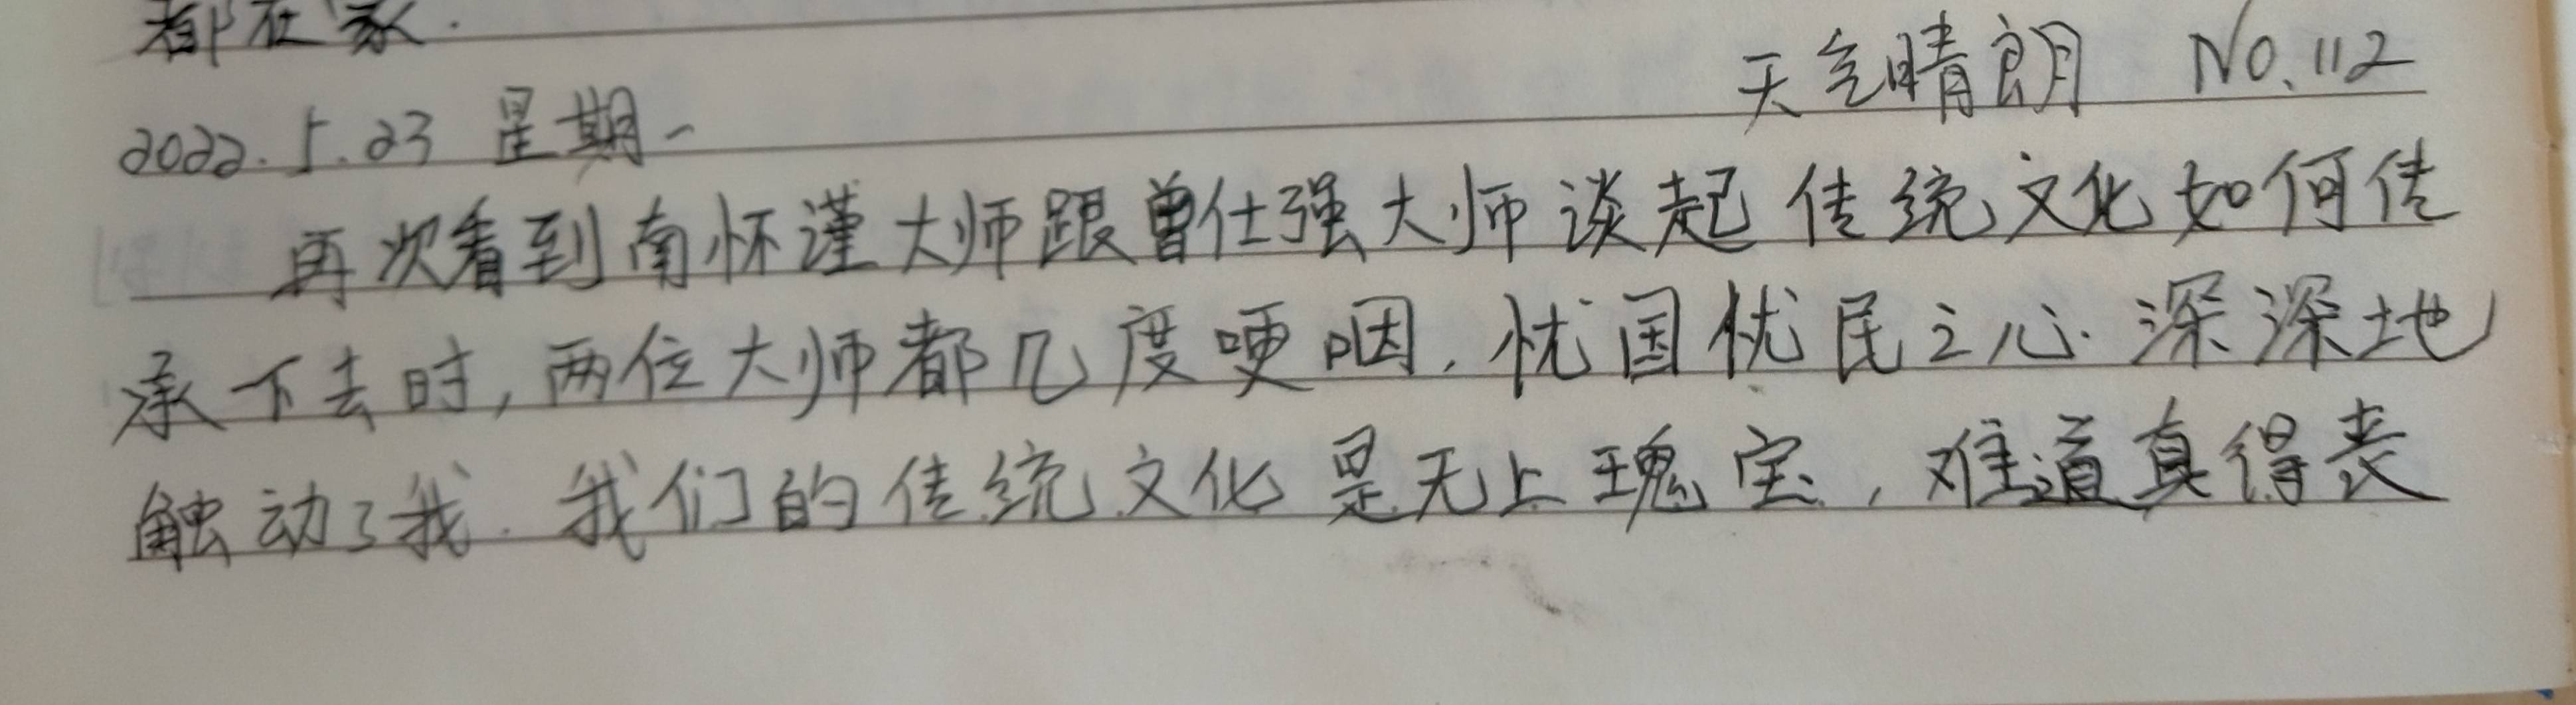 都在家.
天气晴朗 No.112
2022.5.23 星期一
再次看到南怀谨大师跟曾仕强大师谈起传统文化如何传
承下去时,两位大师都几度哽咽.忧国忧民之心.深深地
触动了我.我们的传统文化是无上瑰宝,难道真得丧